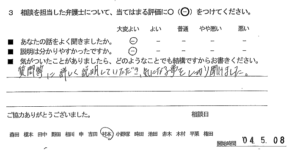 3 相談を担当した弁護士について、当てはまる評価に○(⊖)をつけてください。
大変よい よい 普通 やや悪い 悪い
■ あなたの話をよく聞きましたか。
■ 説明は分かりやすかったですか。
■ 気がついたことがありましたら、どのようなことでも結構ですからお書きください。
質問等に詳しく説明していただき、気になる事をしっかり聞けました。
ご協力ありがとうございました。 相談日
森田 榎本 田中 野田 相川 申 吉田 杉本 小野塚 時田 池田 赤木 木村 平栗 権田
開始時間 04.5.08